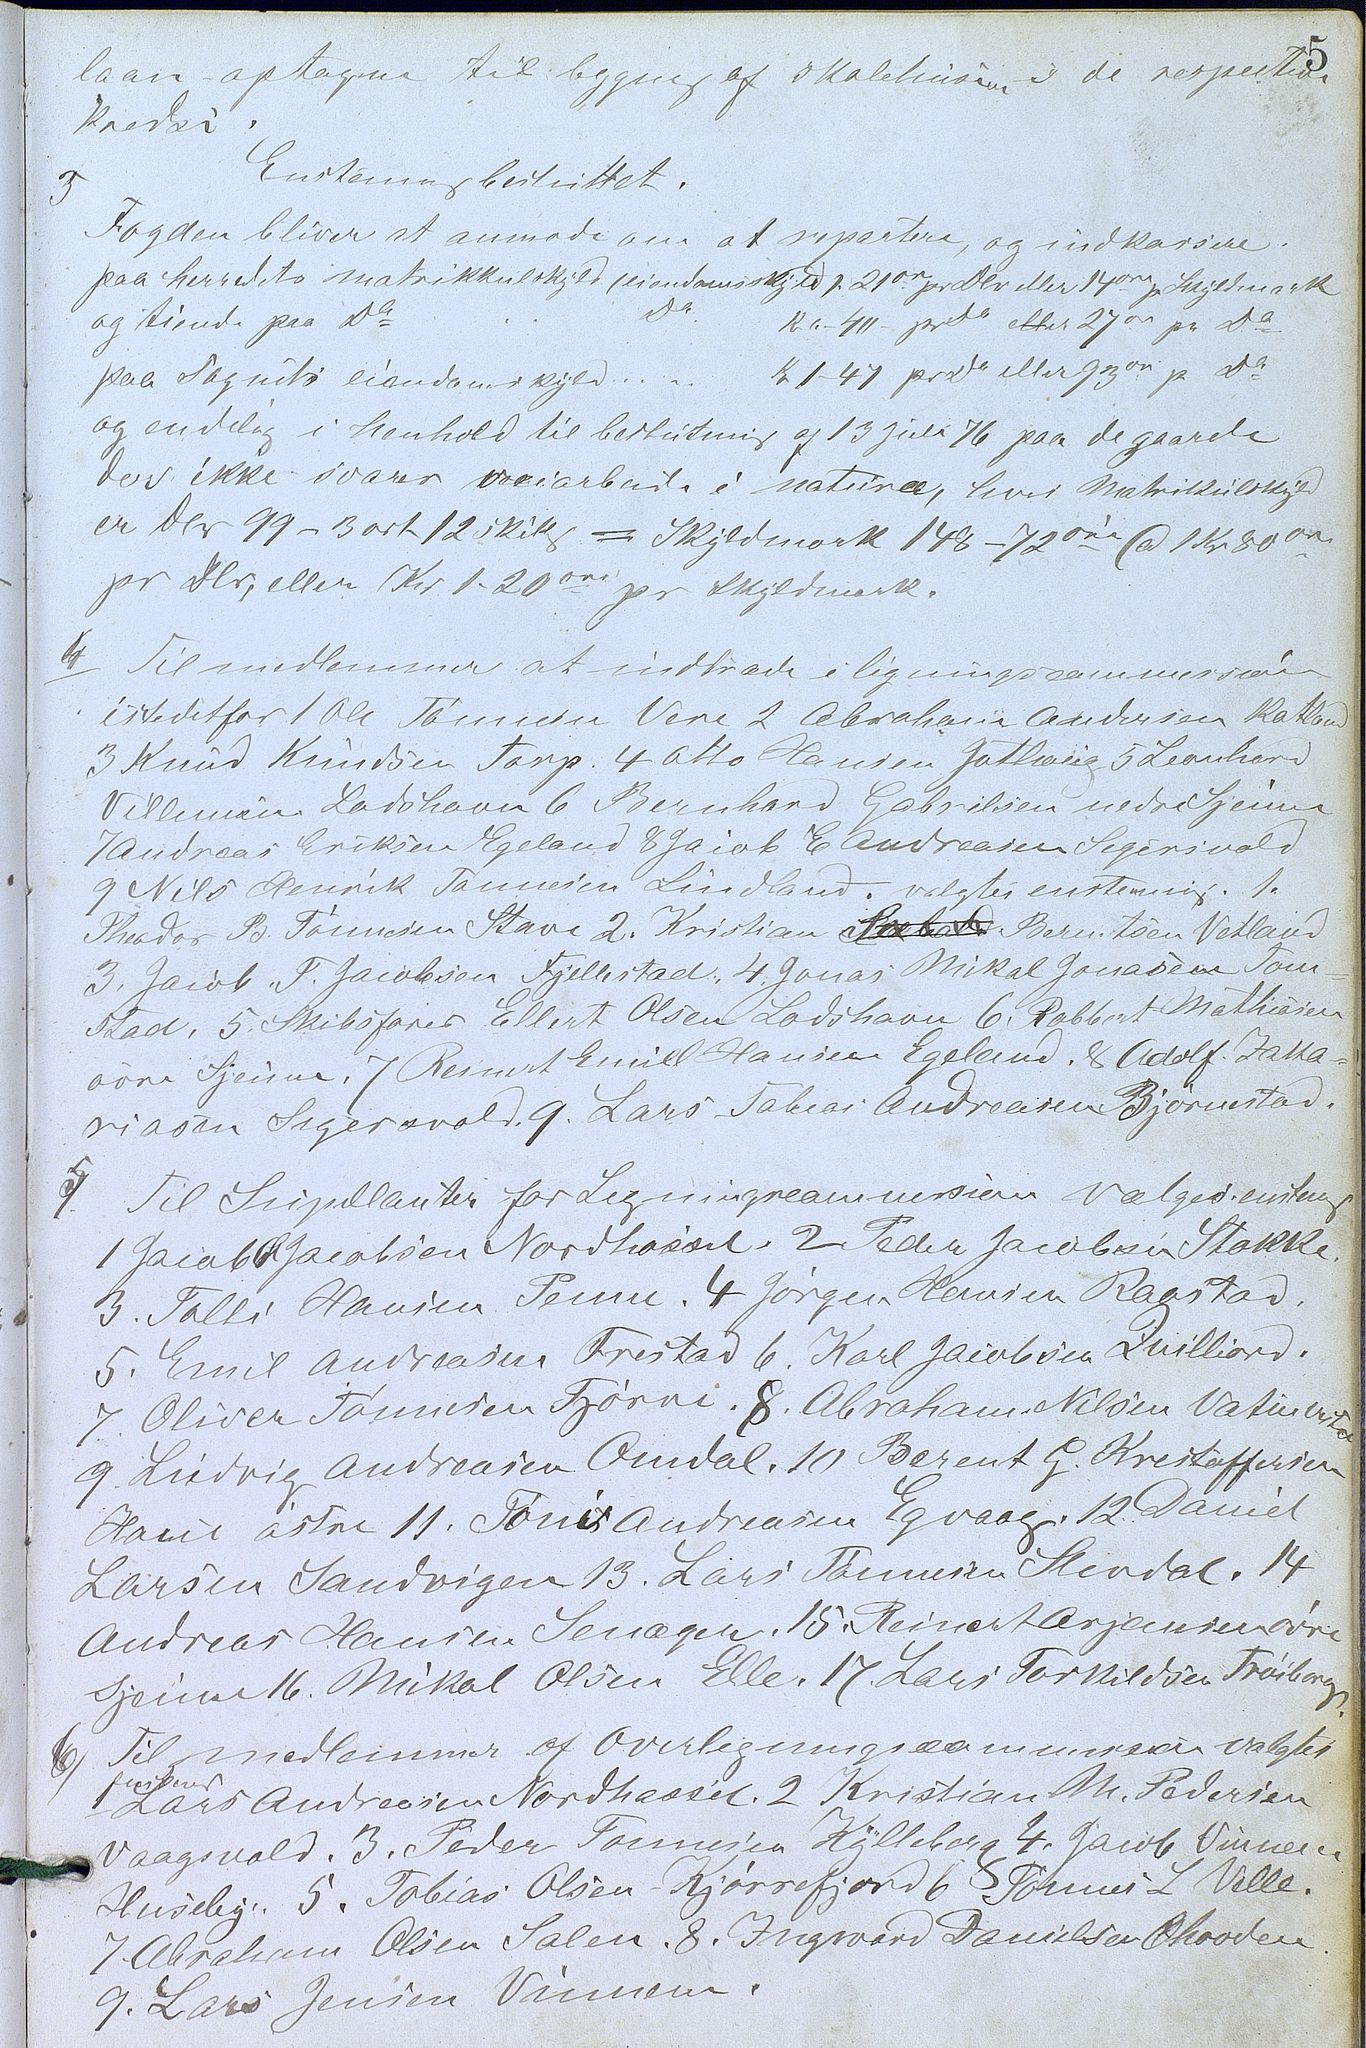 5
laan optagne til bygning af skolehusene i de respective
kredse.
Enstemmig besluttet.
3
Fogden bliver at anmode om at repartere, og indkassere
paa herredets matrikkulskyld (eiendomsskyld) 1. 21 øre pr Dlr eller 14 øre pr Skyldmark
og tiende paa Da Da Kr -411- pr Da eller 27 øre pr Da
paa Sognets eiendomsskyld .. .. Kr 1-47 pr Da eller 93 øre pr Da
og endelig i henhold til beslutning af 13 Juli 76 paa de gaarde
der ikke svarer veiarbeide i natura, hvis Matrikulskyld
er Dlr 99 - 3 ort 12 skill = Skyldmark 148 - 72 øre @ 1 Kr 80 øre
pr Dlr, eller Kr 1-20 øre pr Skyldmark.
4 Til medlemmer at indtræde i ligningscommissionen
istedetfor 1 Ole Tønnesen Vere 2 Abraham Andersen Katland
3 Knud Knudsen Torp. 4 Otto Hansen 5 Leonhard
Villumsen Lodshavn 6 Bernhard Gabrielsen nedre Sjeime
7 Andreas Eriksen Egeland 8 Jacob E Andreasen Segersvold
9 Nils Henrik Tønnesen Lindland. valgtes enstemmig. 1.
Theodor B. Tønnesen Stave 2. Kristian Berntsen Vetland
3. Jacob. T. Jacobsen Fjellestad. 4. Jonas Mikal Jonassen Tom-
stad. 5. Skibsfører Ellert Olsen Lodshavn 6. Robbert Mathiasen
øvre Sjeime. 7 Reinert Emill Hansen Egeland. 8 Adolf Zakka-
riasen Segersvold. 9. Lars Tobias Andreasen Bjørnestad.
5/ Til Supellanter for Ligningscommissionen vælges enstemmig
1 Jacob Jacobsen Nordhassel. 2 Peder Jacobsen Stokke.
3. Tolli Hansen Penne. 4 Jørgen Hansen Ragstad.
5. Emil Andreasen Frestad 6. Karl Jacobsen Quilliord.
7. Oliver Tønnesen Fjørne. 8. Abraham Nilsen Vatne vestre
9. Ludvig Andreasen Omdal. 10 Berent G. Kristoffersen
Haue østre 11. Tønis Andreasen Egvaag. 12. Daniel
Larsen Sandvigen 13. Lars Tønnesen Slevdal. 14
Andreas Hansen Senager. 15. Reinert Arjansen øvre
Sjeime 16. Mikal Olsen Elle. 17. Lars Torkildsen Frøiborg.
6/ Til medlemmer af Overligningscommission valgtes
enstem
1 Lars Andreasen Nordhassel. 2 Kristian M. Pedersen
Vaagsvold. 3. Peder Tønnesen Kylleberg 4. Jacob Vinnem
Huseby. 5. Tobias Olsen Kjørrefjord 6 Tønnes L Velle.
7. Abraham Olsen Salen. 8. Ingvard Danielsen
9. Lars Jensen Vinnem.